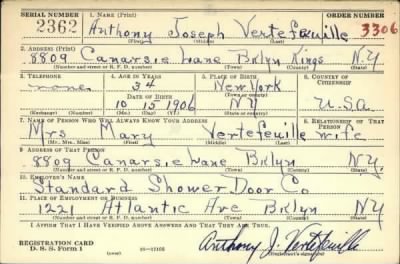 SERIAL NUMBER 1. NAME (Print) ORDER NUMBER
2362 Anthony Joseph Vertefeuille 3306
(First) (Middle) (Last)
2. ADDRESS (Print)
8809 Canarsie Lane Bklyn Kings N.Y
(Number and street or R. F. D. number) (Town) (County) (State)
3. TELEPHONE 4. AGE IN YEARS 5. PLACE OF BIRTH 6. COUNTRY OF CITIZENSHIP
none 34 New York
DATE OF BIRTH
10 15 1906 NY U.S.A
(Exchange) (Number) (Mo.) (Day) (Yr.) (State or country)
7. NAME OF PERSON WHO WILL ALWAYS KNOW YOUR ADDRESS 8. RELATIONSHIP OF THAT PERSON
Mrs Mary Vertefeuille wife
(Mr., Mrs., Miss) (First) (Middle) (Last)
9. ADDRESS OF THAT PERSON
8809 Canarsie Lane Bklyn N.Y.
(Number and street or R. F. D. number) (Town) (County) (State)
10. EMPLOYER'S NAME
Standard Shower Door Co
11. PLACE OF EMPLOYMENT OR BUSINESS
1221 Atlantic Ave Bklyn N.Y
(Number and street or R. F. D. number) (Town) (County) (State)
I AFFIRM THAT I HAVE VERIFIED ABOVE ANSWERS AND THAT THEY ARE TRUE.
REGISTRATION CARD
D. S. S. Form 1 Anthony J. Vertefeuille
(over) (Registrant's signature)